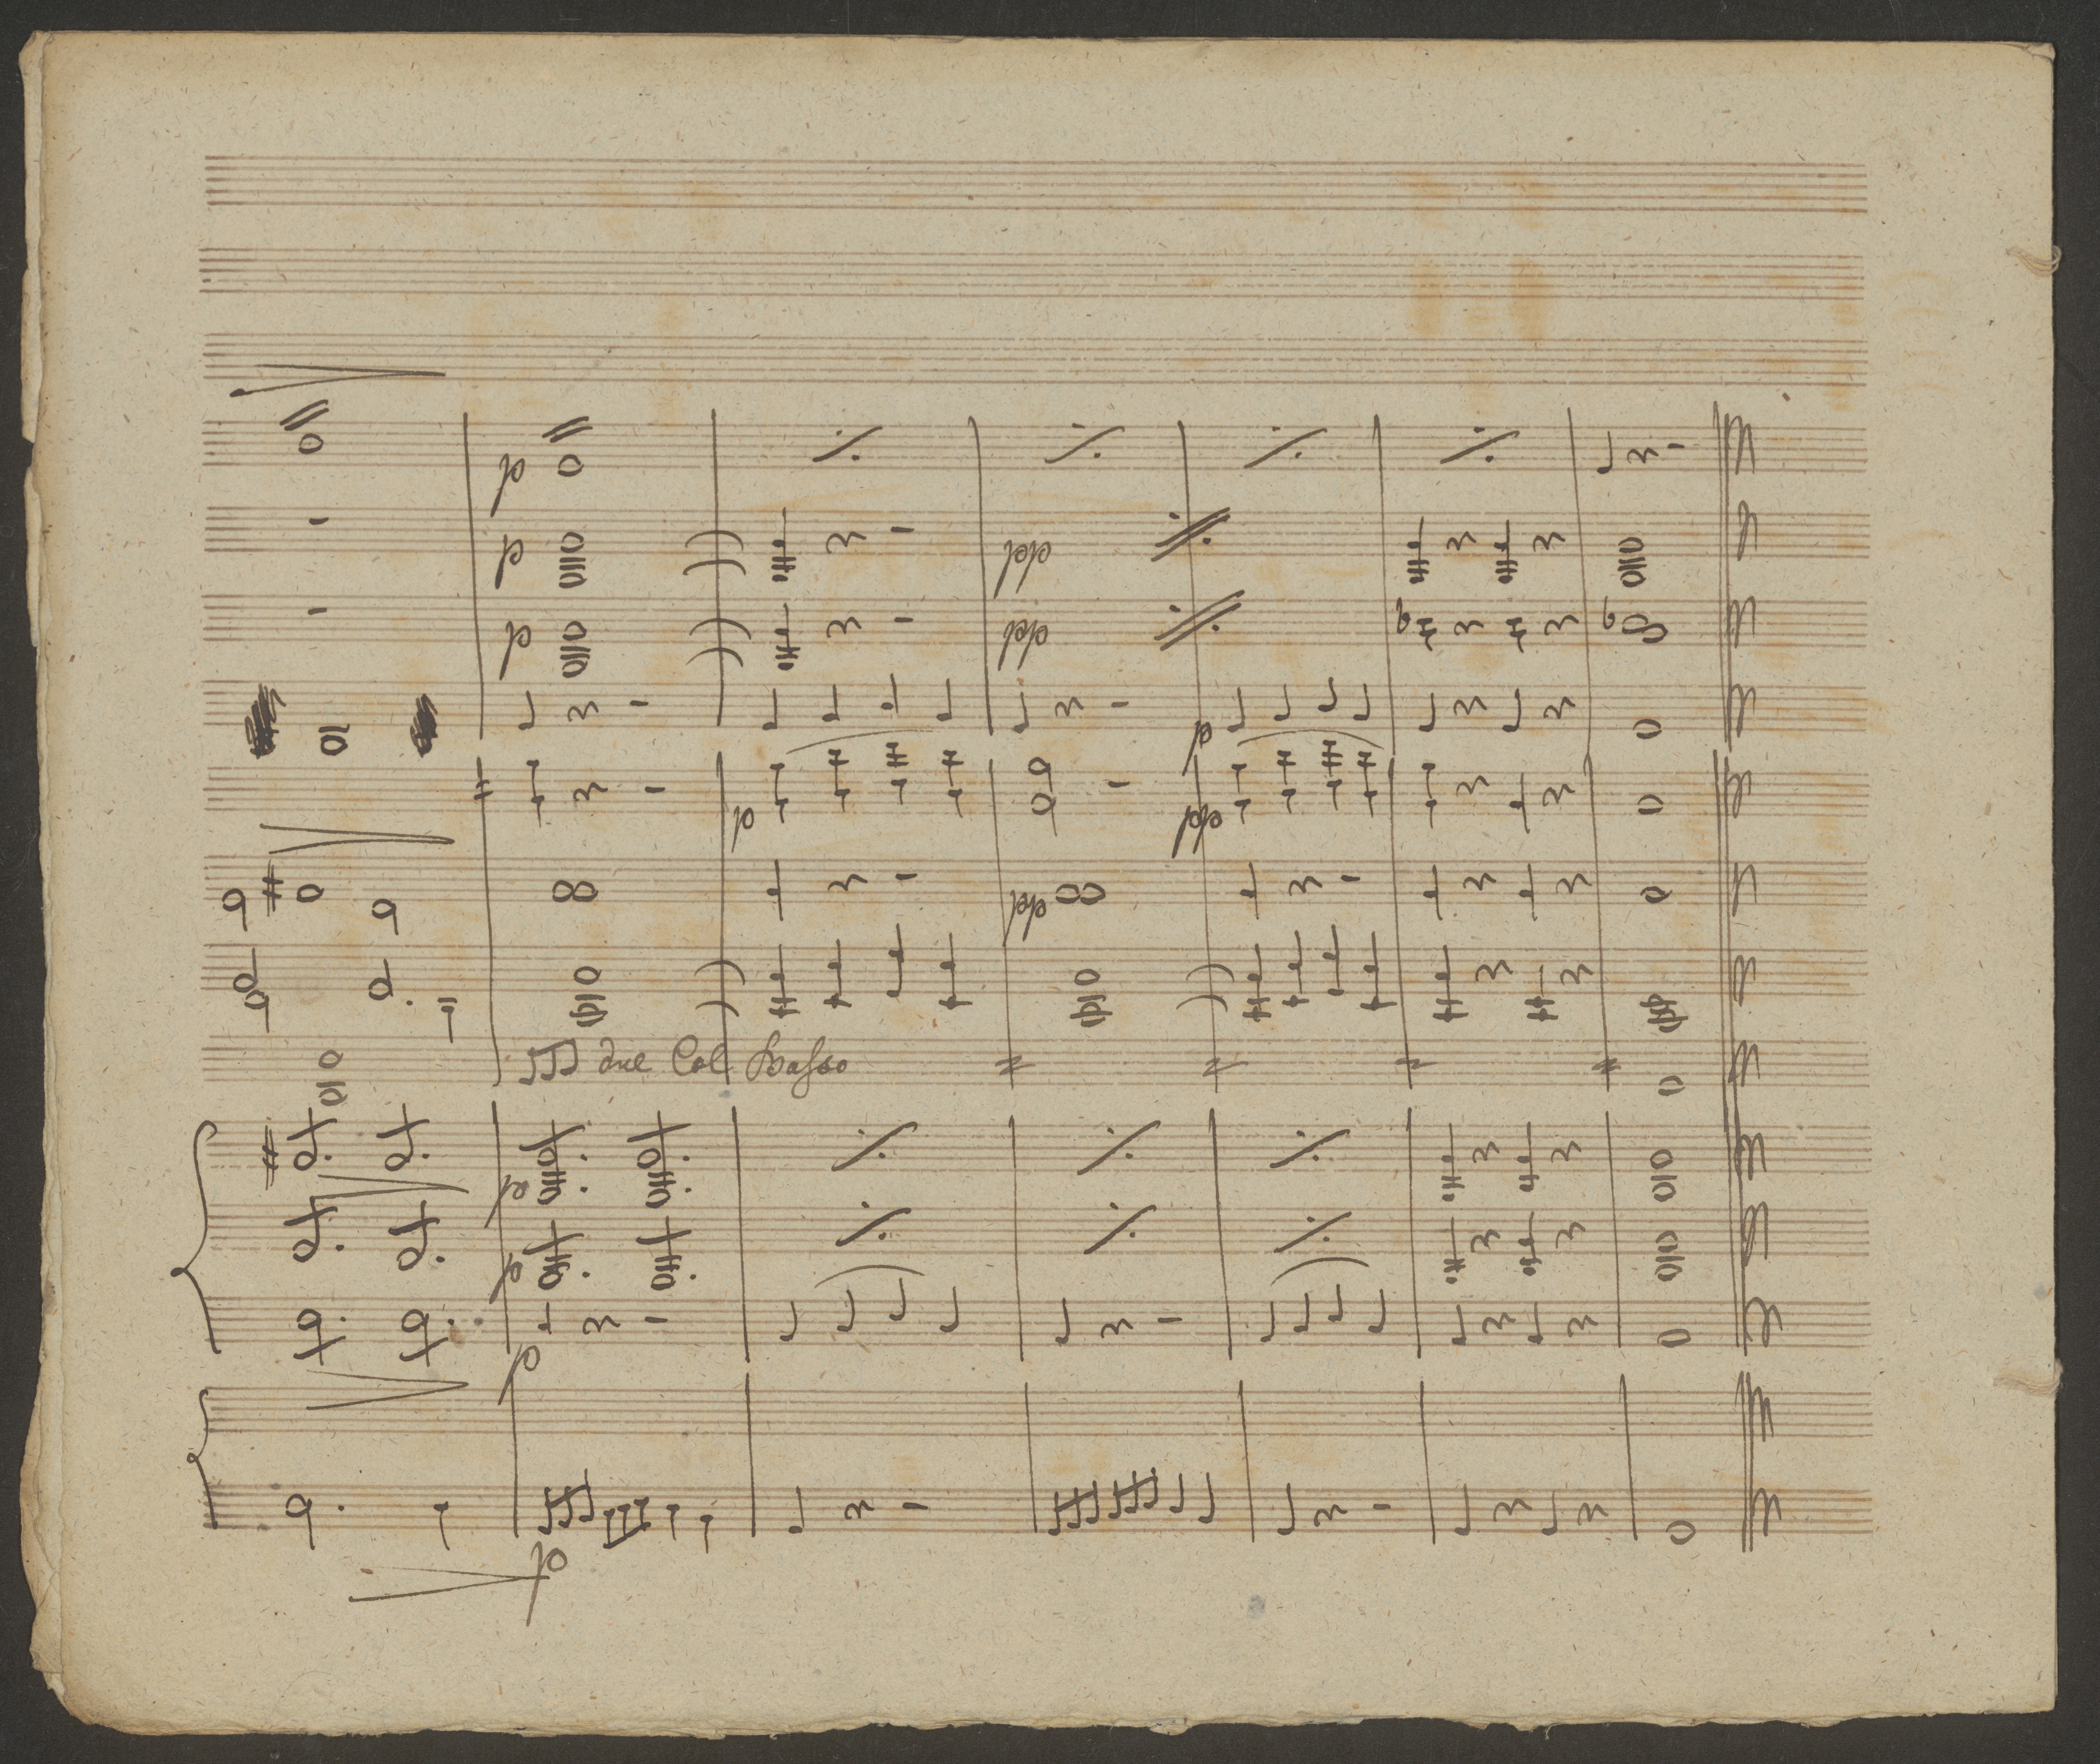 p
p
pp
p
pp
p
p
pp
pp
due Col Basso
p
p
p
p